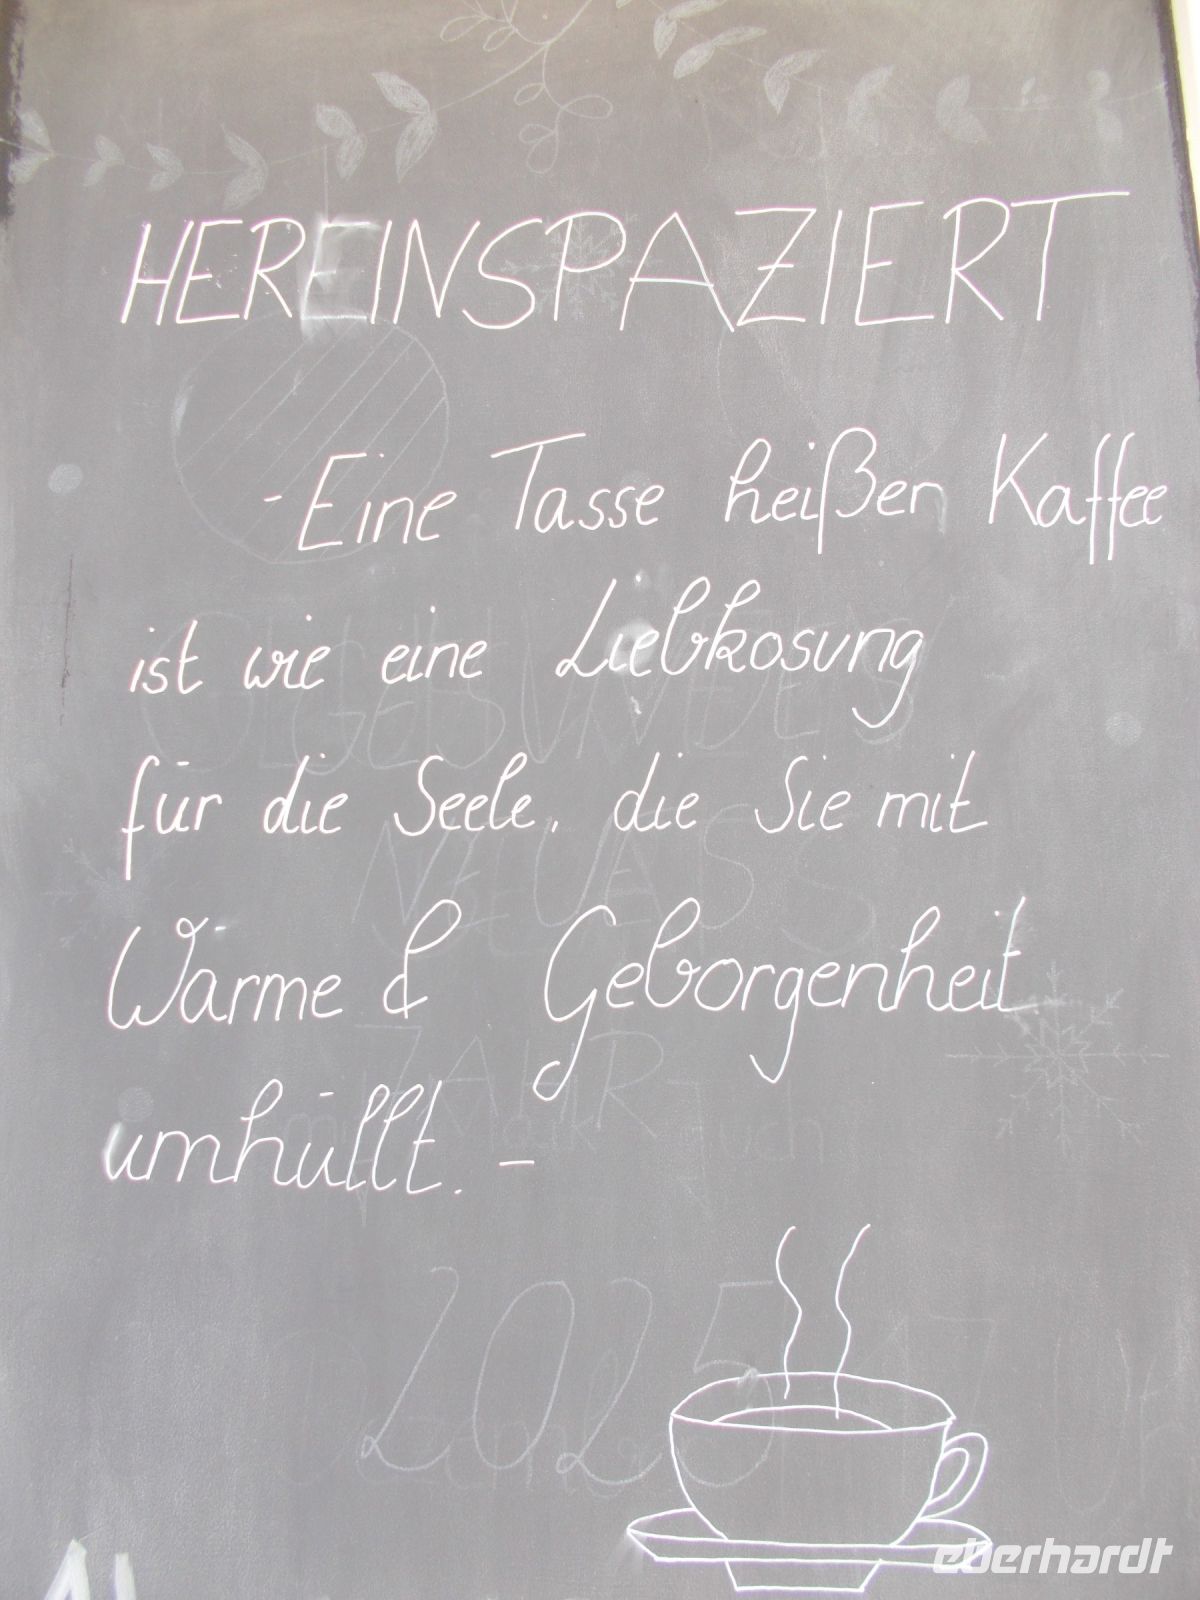 HEREINSPAZIERT
- Eine Tasse heißen Kaffee
ist wie eine Liebkosung
für die Seele, die Sie mit
Wärme & Geborgenheit
umhüllt. -
GESUNDES
NEUES
JAHR
2025
eberhardt